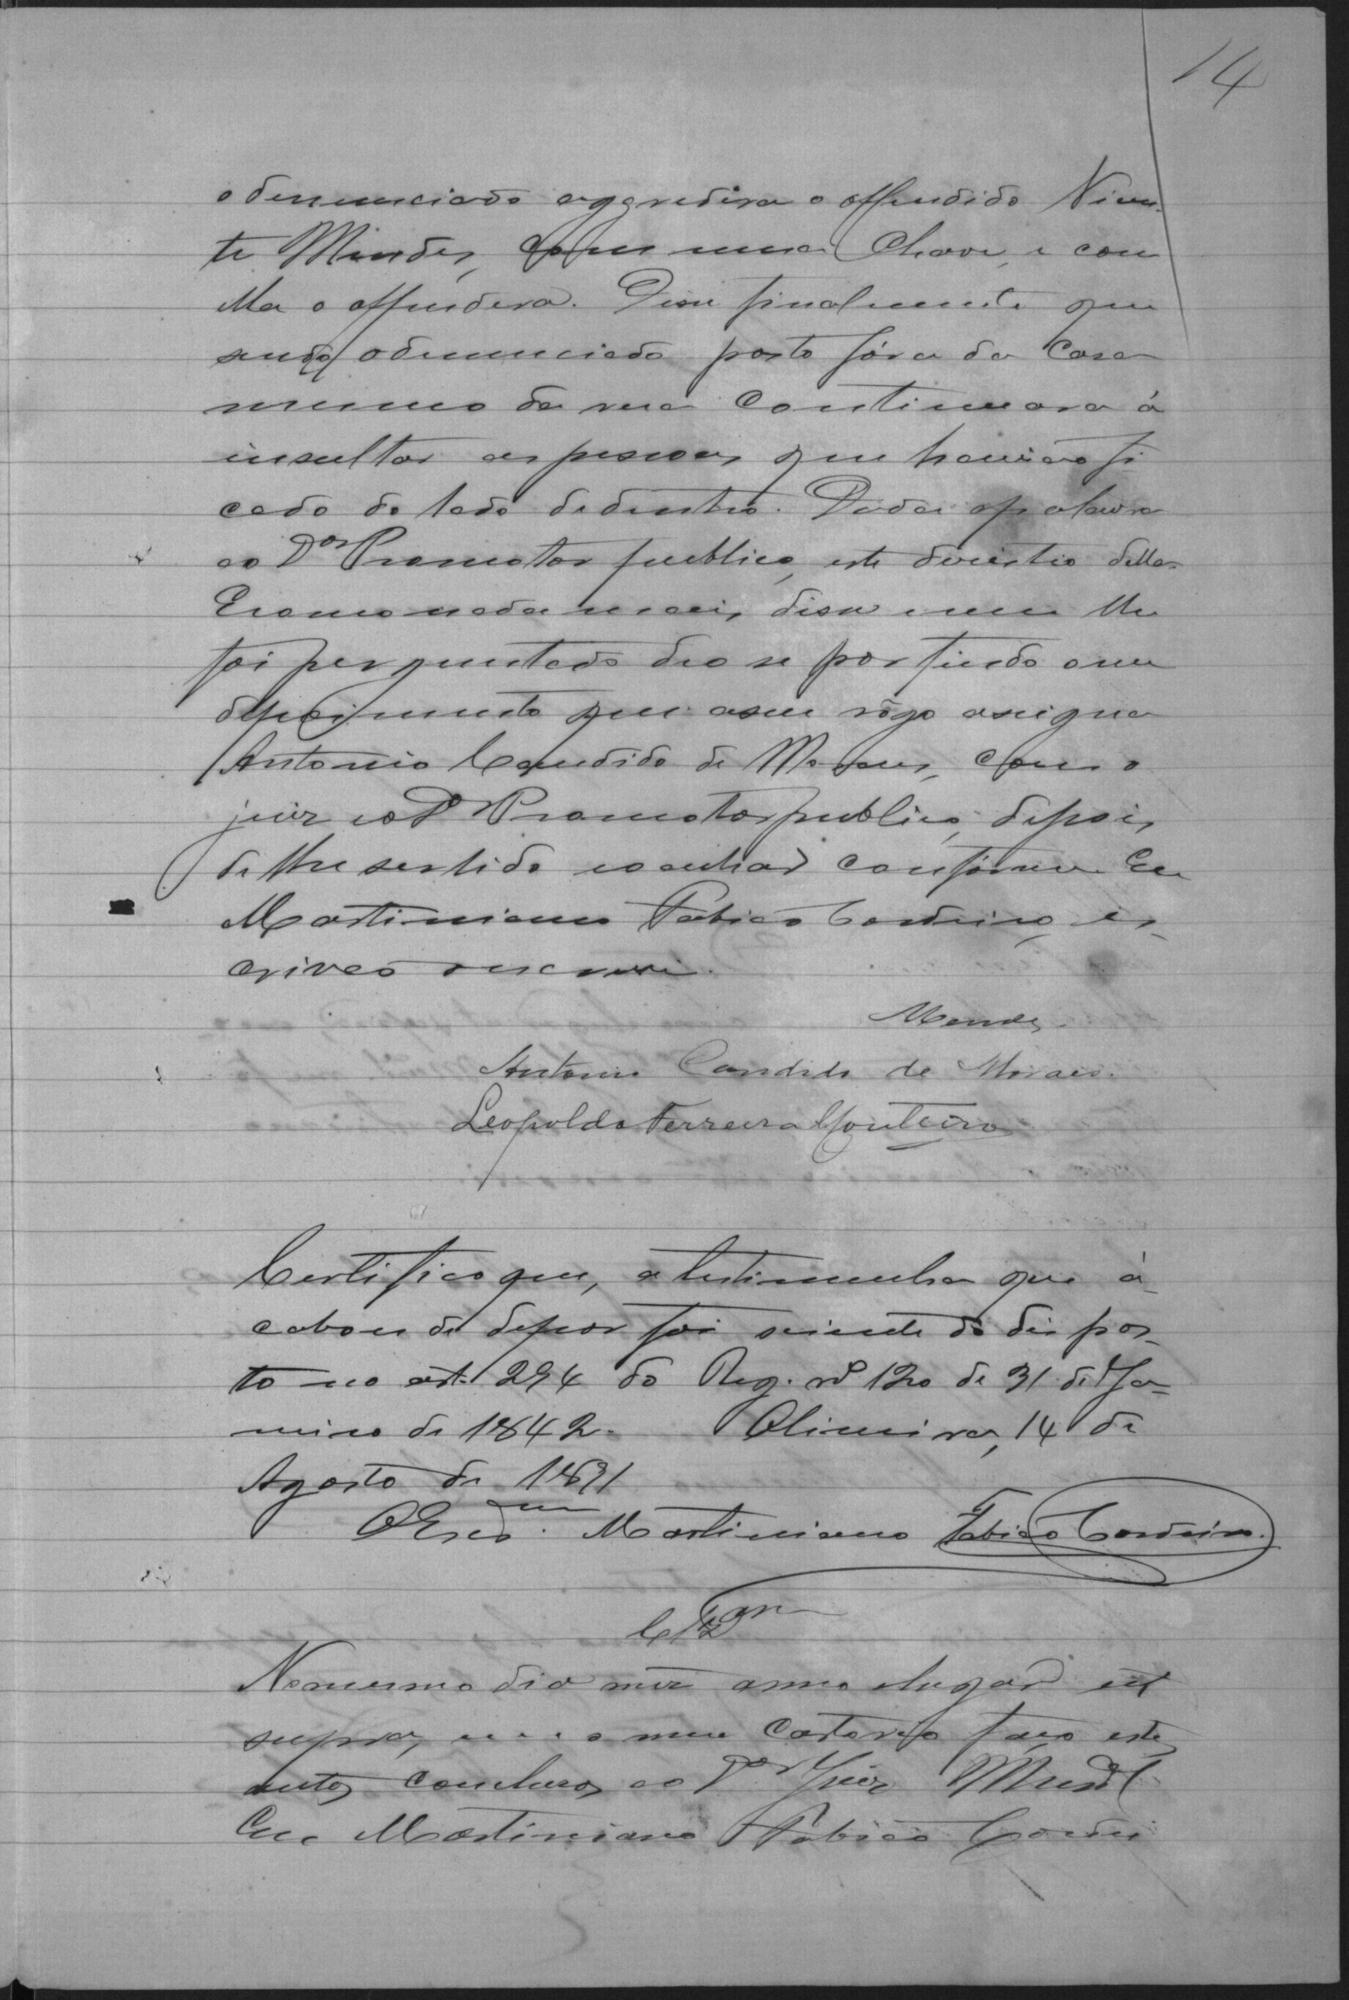 14
o denunciado aggredira o offendido Vicen-
te Mendes, com uma chave, e com
ella o offendera. Disse finalmente que
sendo o denunciado posto fóra da casa
mesmo da rua continuara á
insultar as pessoas que haviaõ fi
cado do lado de dentro. Dada a palavra
ao Dor Promotor publico, este desistio della.
E como nada mais disse nem lhe
foi perguntado deo se por findo o seu
depoimento que a seu rôgo assigna
Antonio Candido de Moraes, com o
juiz e o Dr Promotor publico, depois
de lhe ser lido e o achar conforme Eu
Martiniano Fabião Cordeiro, es-
crivaõ o escrevi.
Mendes.
Antonio Candido de Moraes.
Leopoldo Ferreira Monteiro
Certifico que, a testimunha que á
cabou de depor foi sciente do dispos-
to no art. 294 do Reg. nº 120 de 31 de Ja-
neiro de 1842. 14 de
Agosto de 1891
O Escam. Martiniano Fabião Cordeiro.
Clzam
No mesmo dia mez anno e lugar ut
supra, em o meu cartorio faço estes
autos conclusos ao Dor Juiz Munal
Eu Martiniano Fabião Cordei